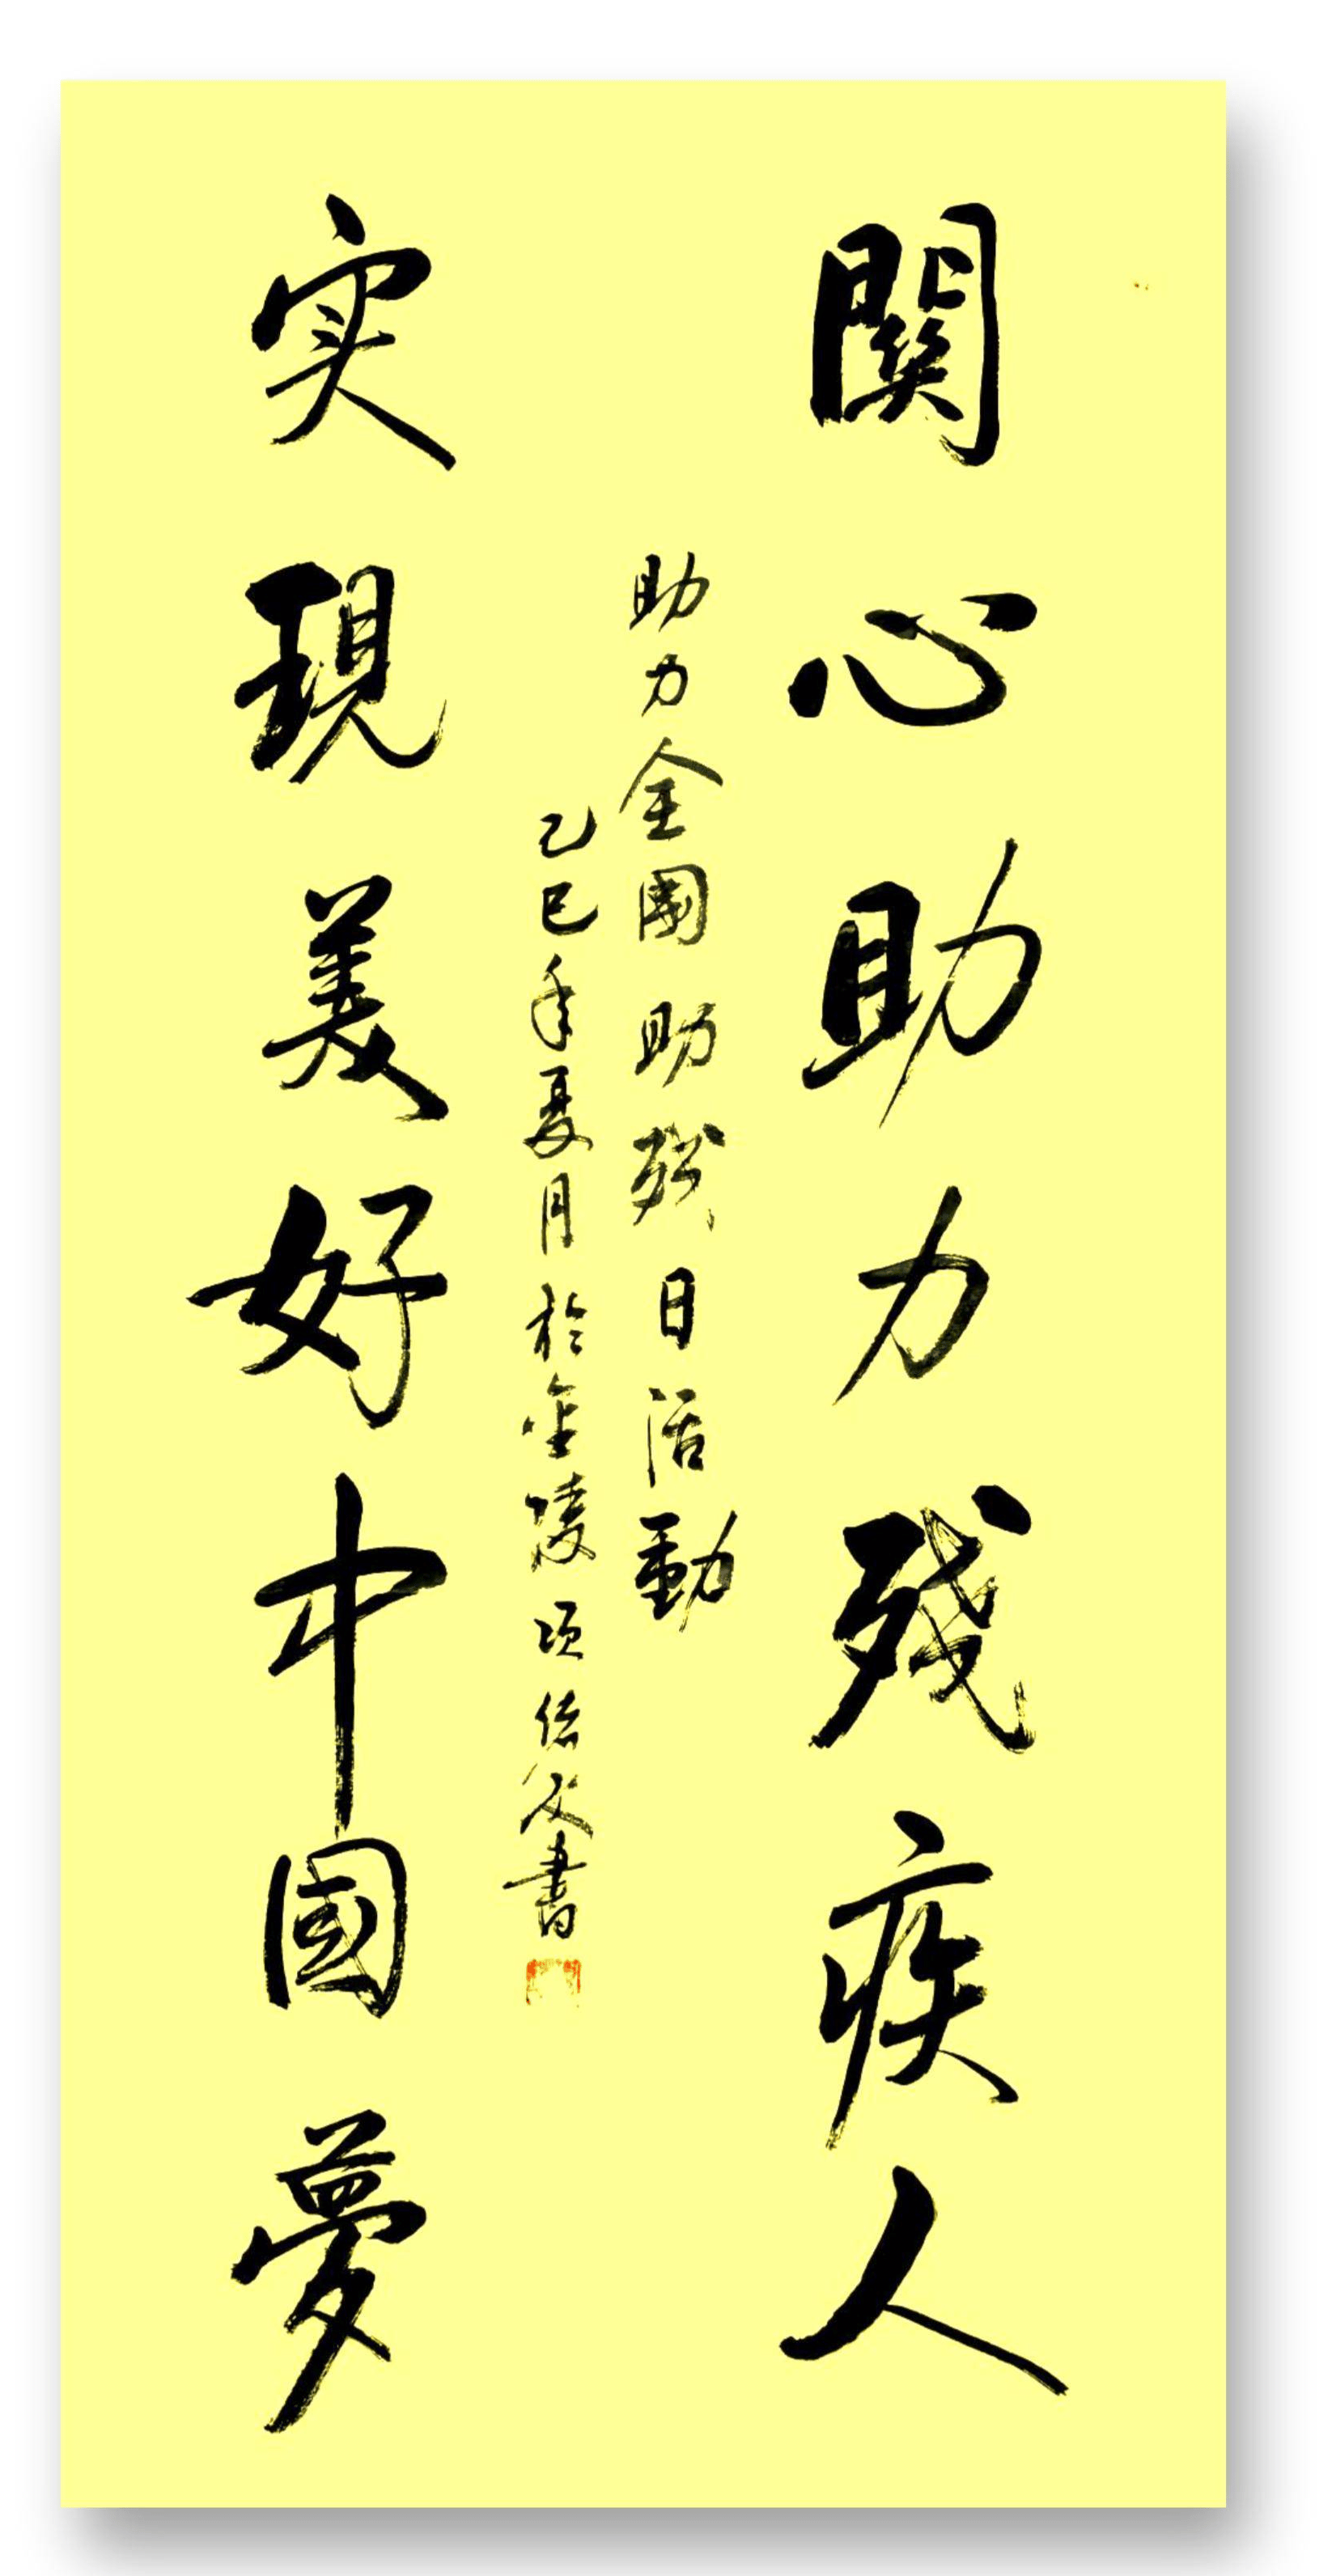 關心助力残疾人
助力全國助残日活動
乙巳年夏月於金陵项 书
实現美好中國夢